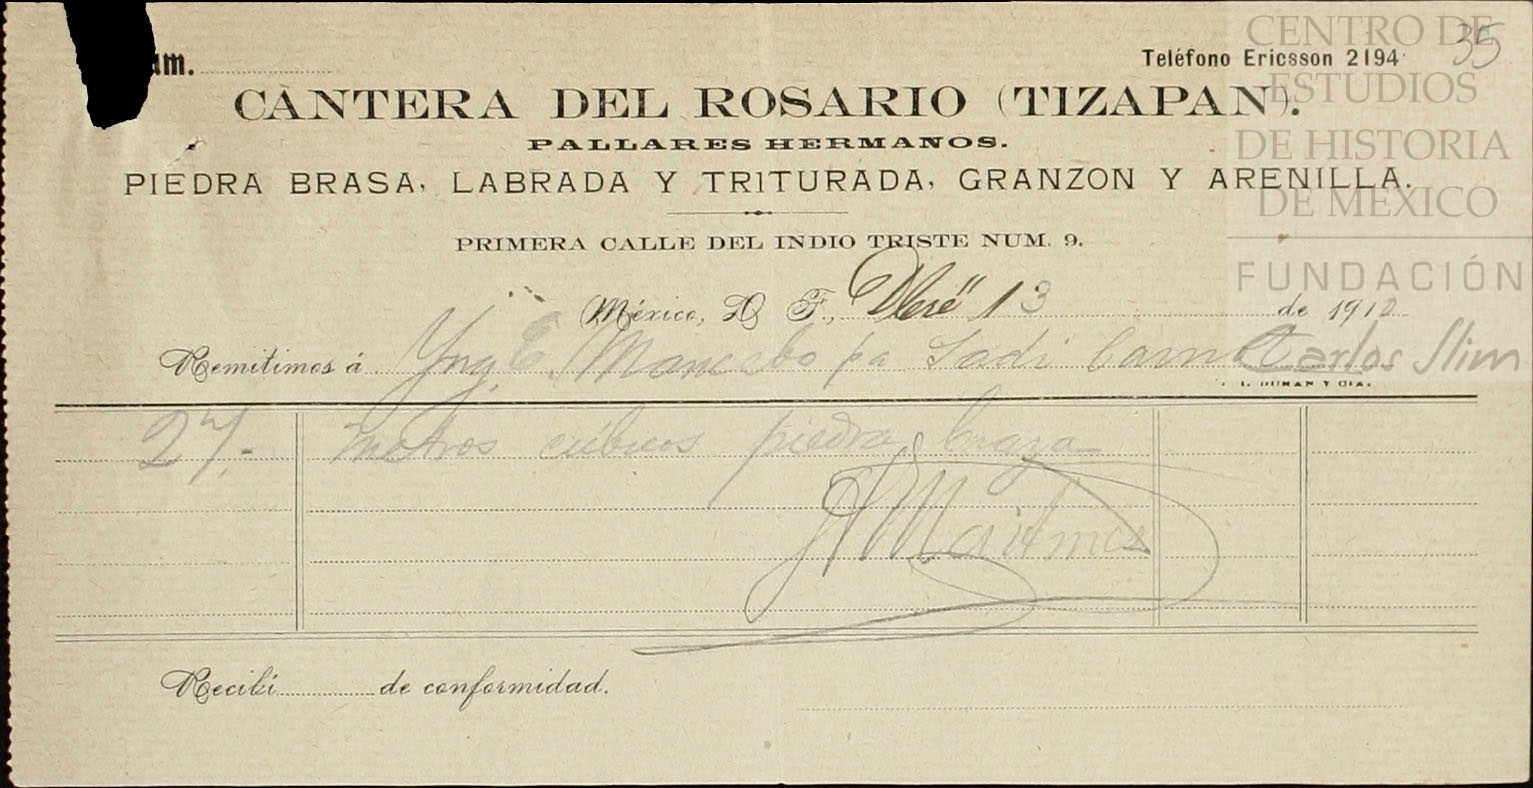 um.
Teléfono Ericsson 2194
35
CANTERA DEL ROSARIO (TIZAPAN).
PALLARES HERMANOS.
PIEDRA BRASA, LABRADA Y TRITURADA, GRANZON Y ARENILLA.
PRIMERA CALLE DEL INDIO TRISTE NUM. 9.
México, D. F., 13 de 1910
Remitimos á Yng. E. Mancebo pa Sadi Carn
27.- metros cúbicos piedra braza
Martinez
Recibí de conformidad.
CENTRO DE
ESTUDIOS
DE HISTORIA
DE MÉXICO
FUNDACIÓN
Carlos Slim